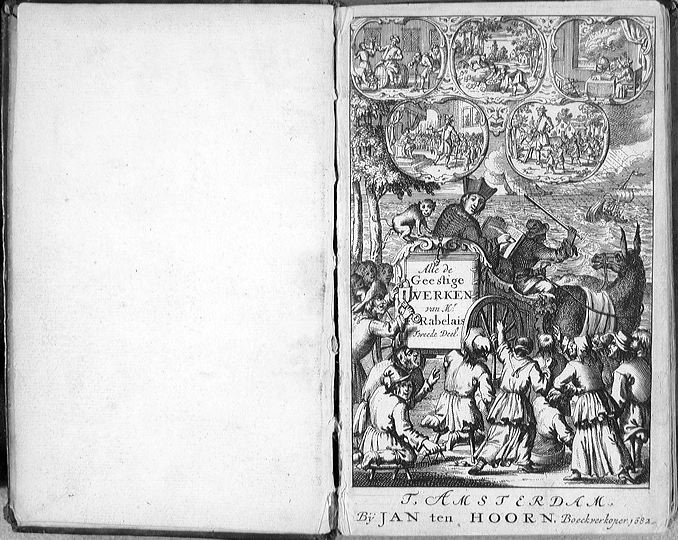 Alle de
Geestige
WERKEN
van Mr.
Rabelais
Tweede Deel.
T. AMSTERDAM,
By JAN ten HOORN, Boeckverkoper, 1682.